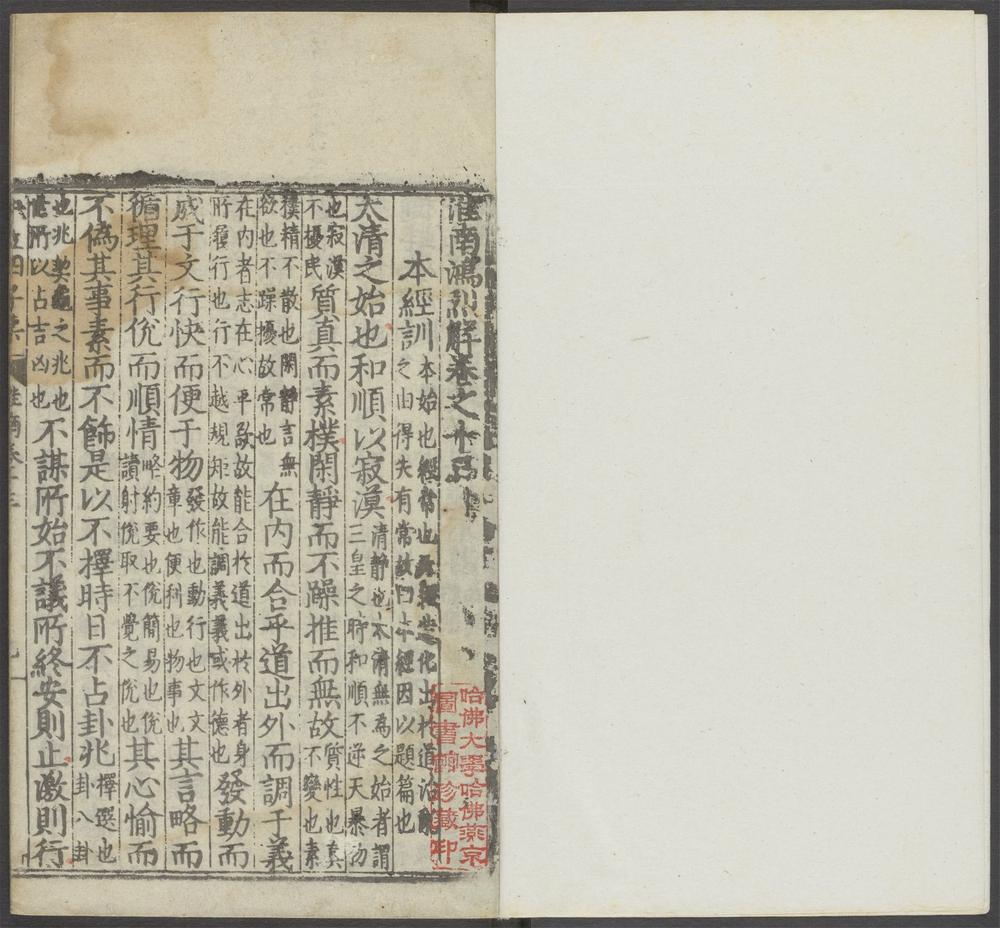 淮南鴻烈解卷之十三
本經訓本始也經常也本經造化出於道治亂之由得失有常故曰本經因以題篇也
太清之始也和順以寂漠清静也太清無為之始者謂三皇之時和順不逆天暴物
也寂漠不擾民質真而素樸閑靜而不躁推而無故質性也真不變也素
樸精不散也閑静言無欲也不躁擾故常也在内而合乎道出外而調于義
在内者志在心平欲故能合於道出於外者身所履行也行不越規矩故能調義義或作德也發動而
成于文行快而便于物發作也動行也文文章也便利也物事也其言略而
循理其行侻而順情略約要也侻簡易也侻讀射侻取不覺之侻也其心愉而
不偽其事素而不飾是以不擇時日不占卦兆擇選也卦八卦
也兆契龜之兆也皆所以占吉凶也不謀所始不議所終安則止激則行
哈佛大學哈佛燕京
圖書館珍藏印